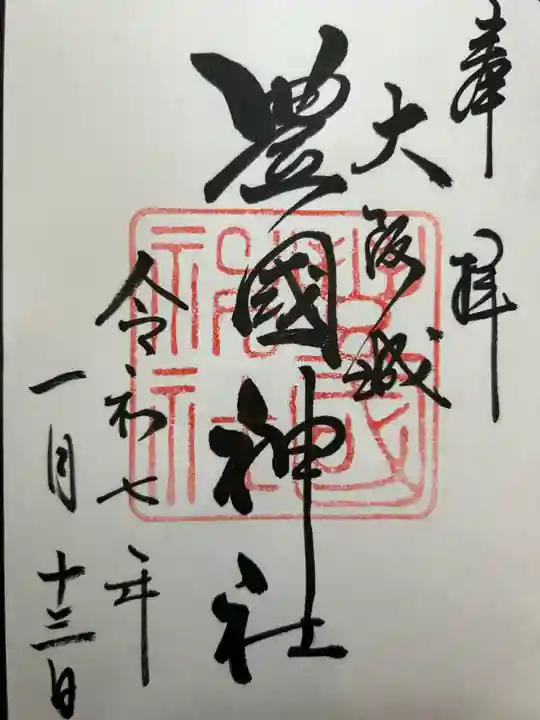 奉拝
大阪城
豊國神社
令和七年
一月十三日